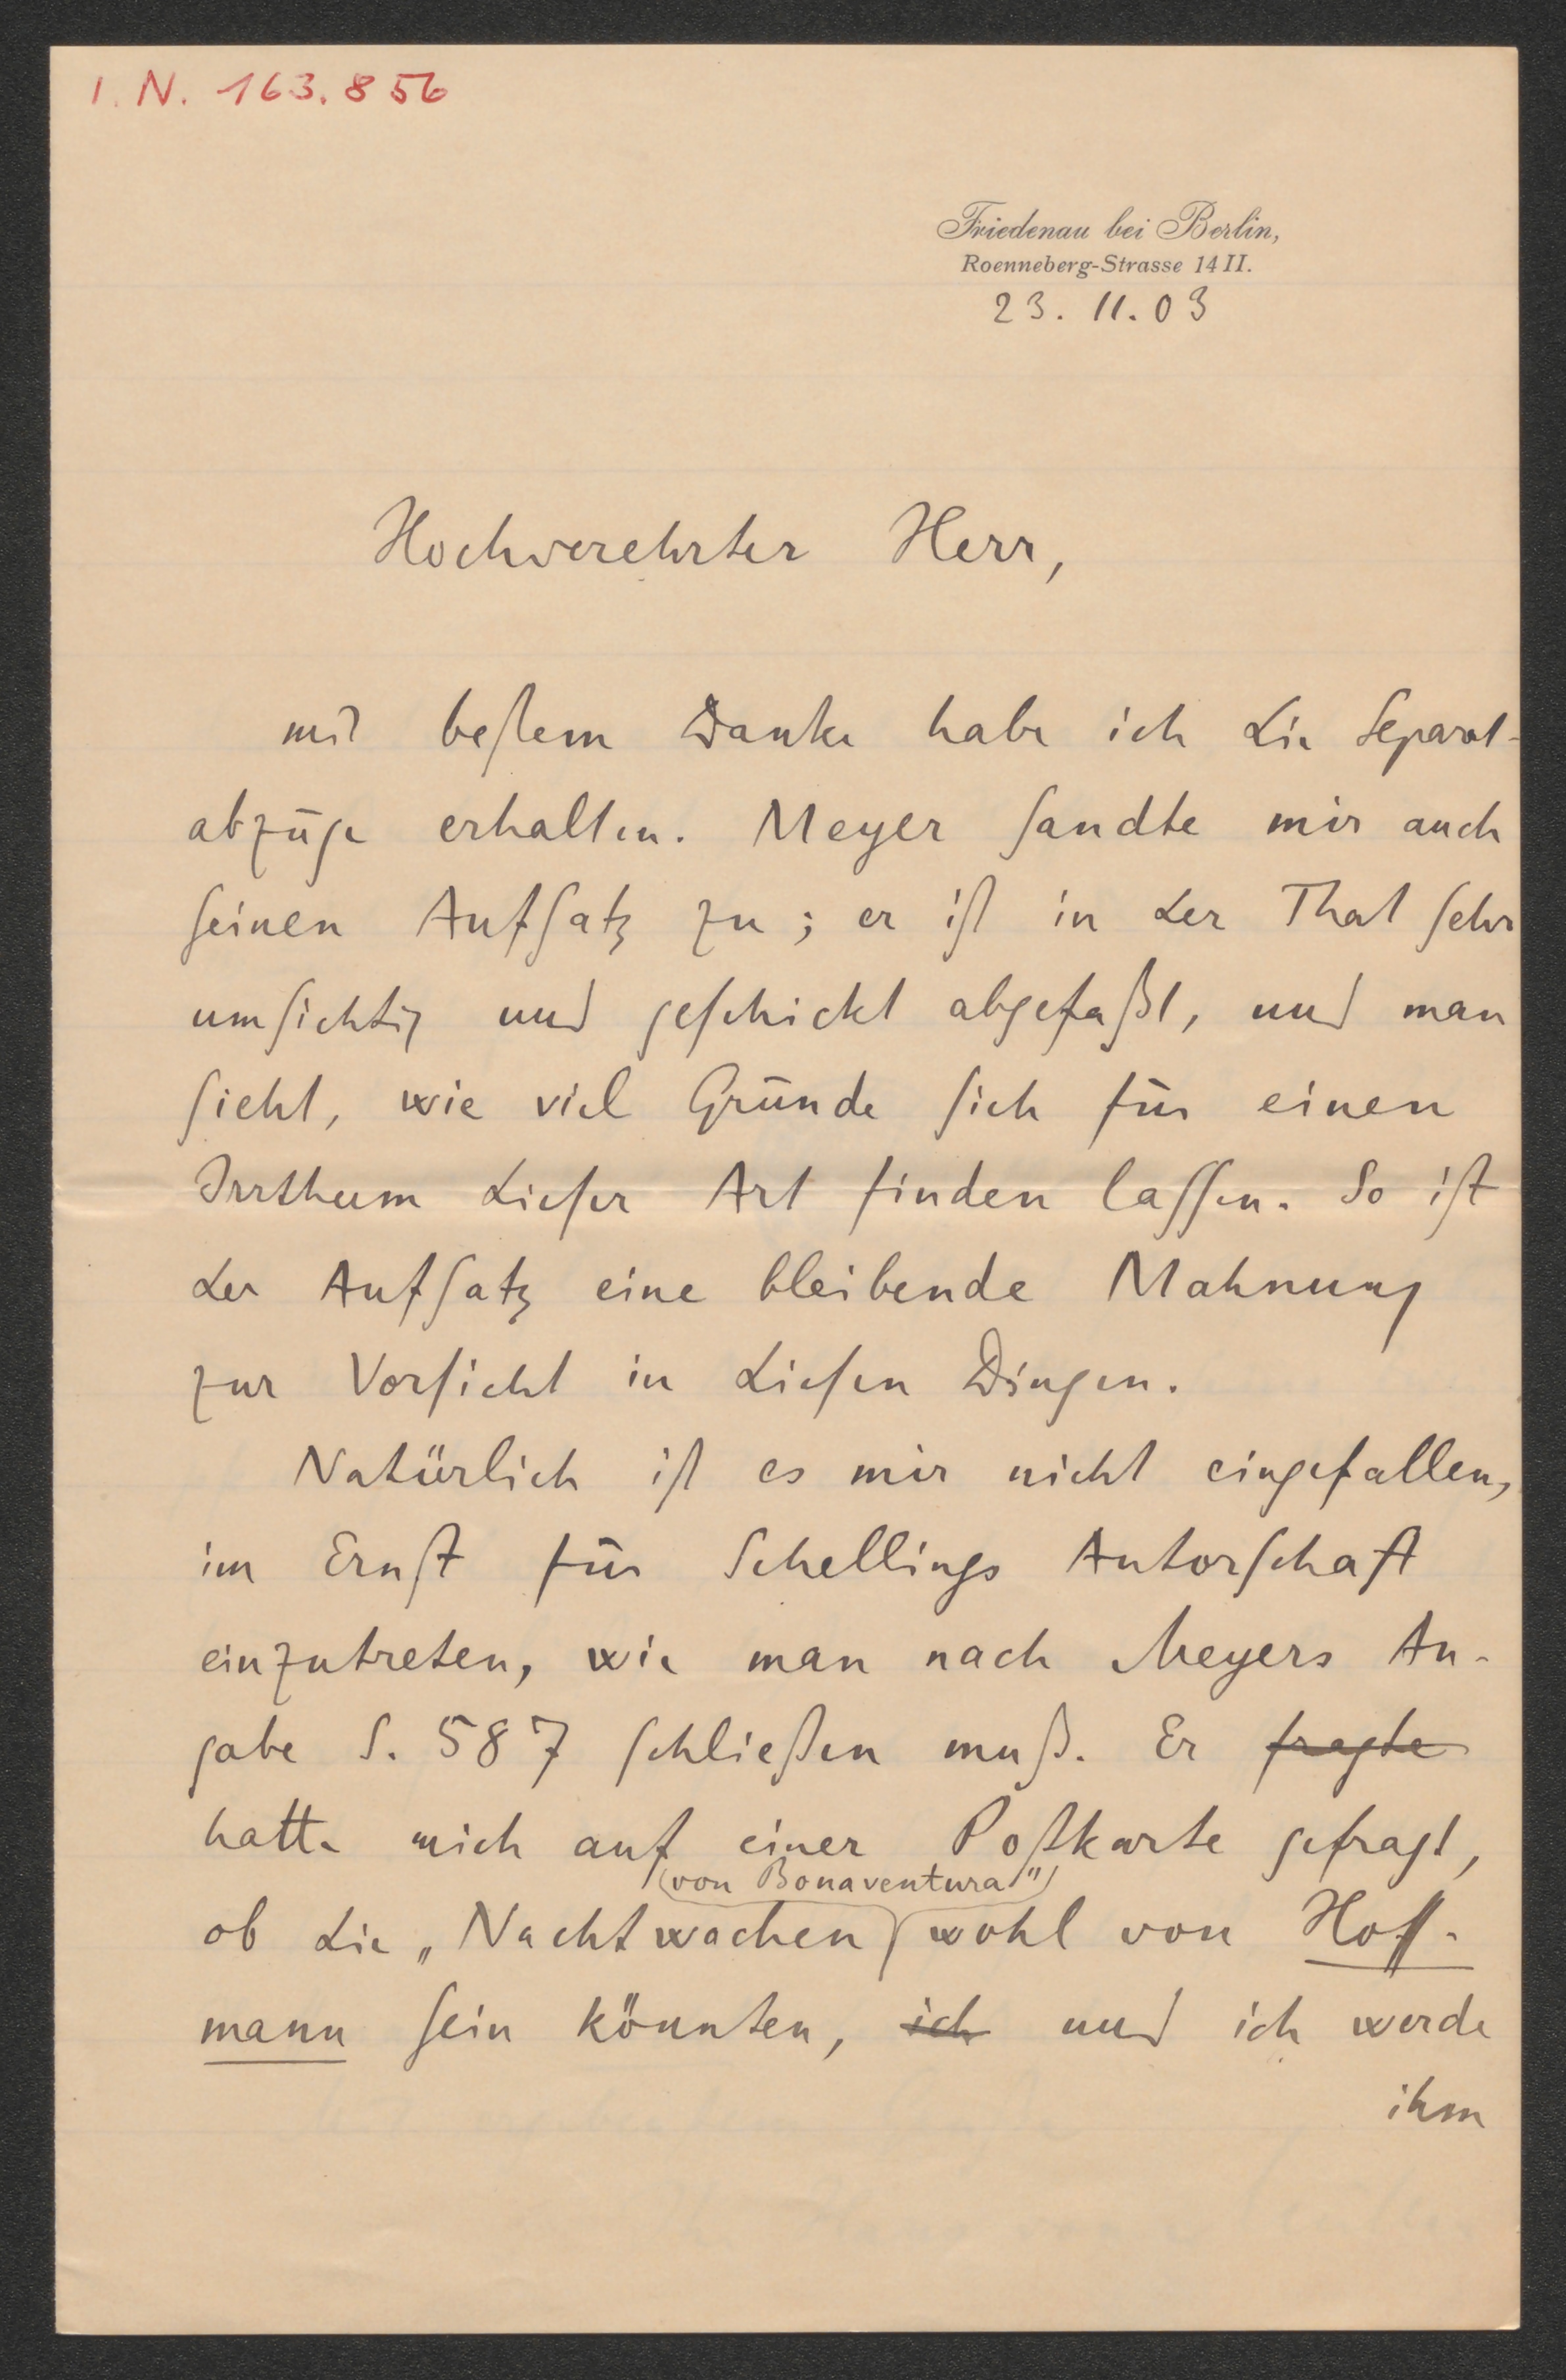 I. N. 163.856
Friedenau bei Berlin,
Roenneberg-Strasse 14 II.
23. 11. 03
Hochverehrter Herr,
mit beſtem Danke habe ich die Separat-
abzüge erhalten. Meyer ſandte mir auch
ſeinen Aufſatz zu; er iſt in der That ſehr
umſichtig und geſchickt abgefaßt, und man
ſieht, wie viel Gründe ſich für einen
Irrthum dieſer Art finden laſſen. So iſt
der Aufſatz eine bleibende Mahnung
zur Vorſicht in dieſen Dingen.
Natürlich iſt es mir nicht eingefallen,
im Ernſt für Schellings Autorſchaft
einzutreten, wie man nach Meyers An-
gabe S. 587 ſchließen muß. Er fragte
hatte mich auf einer Poſtkarte gefragt,
(von Bonaventura")
ob die „Nachtwachen wohl von Hoff-
mann ſein könnten, ich und ich werde
ihm